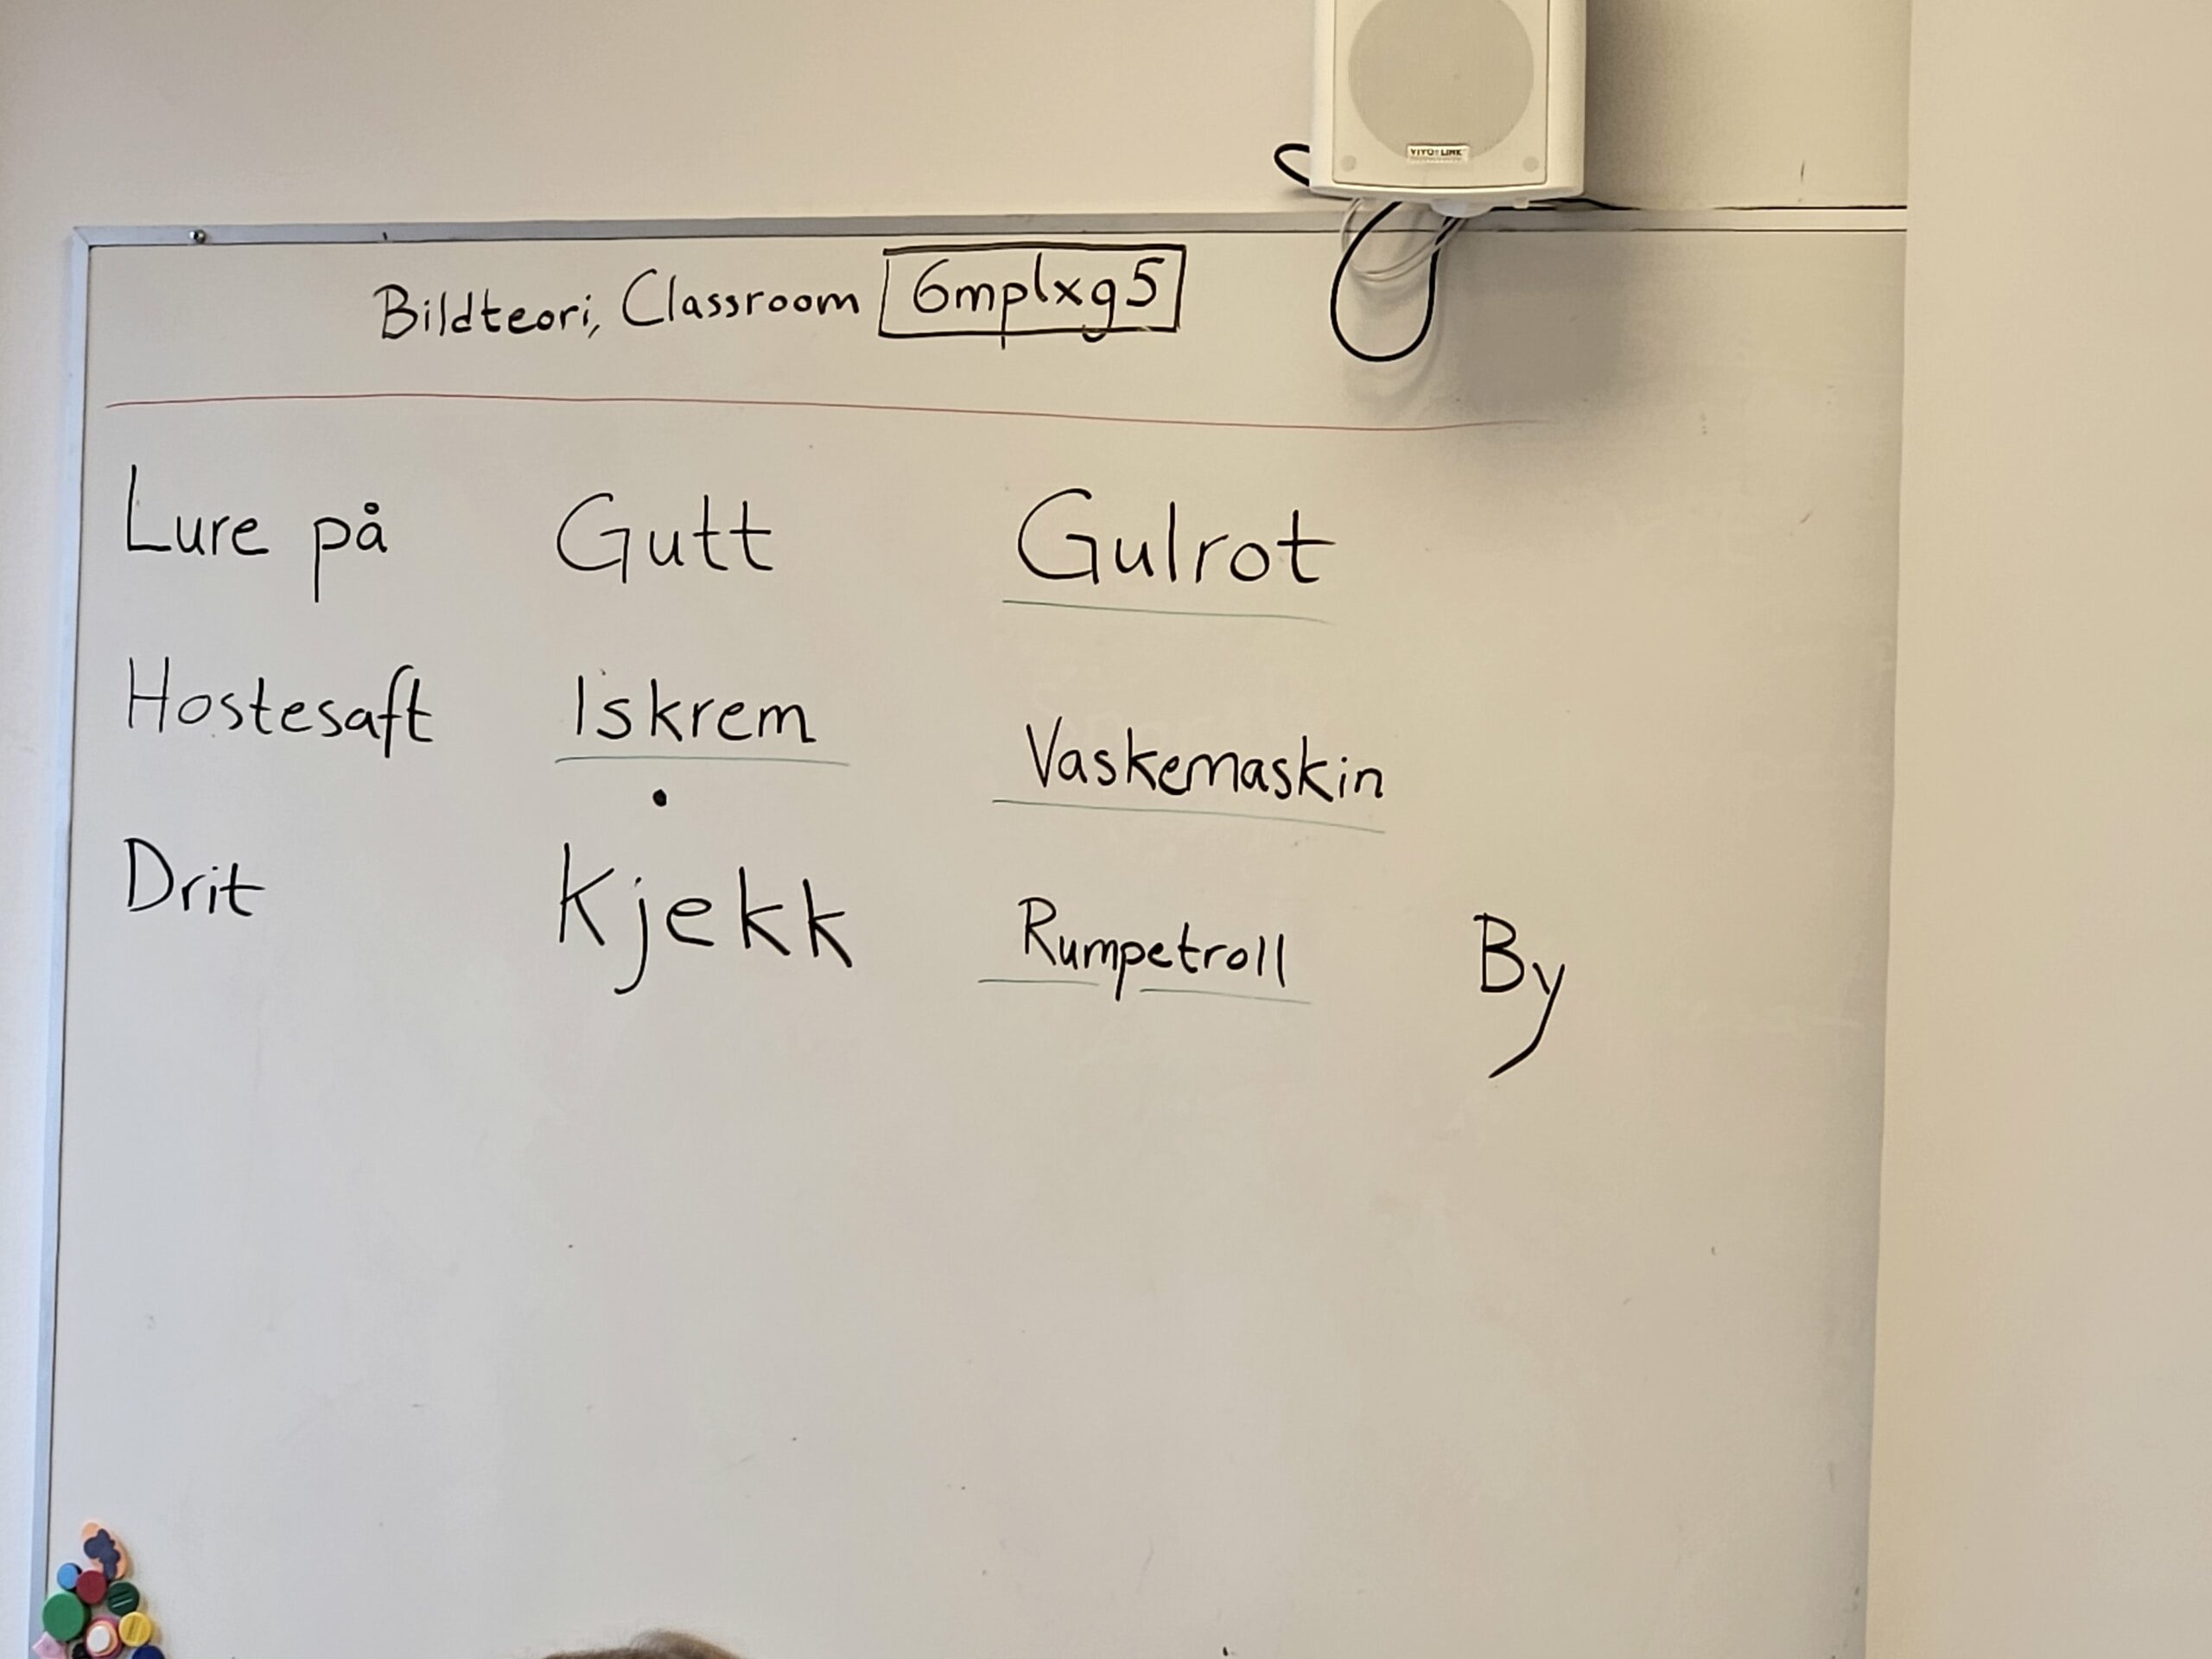 VIVOLINK
Bildteori, Classroom 6mplxg5
Lure på Gutt Gulrot
Hostesaft Iskrem Vaskemaskin
Drit Kjekk Rumpetroll By